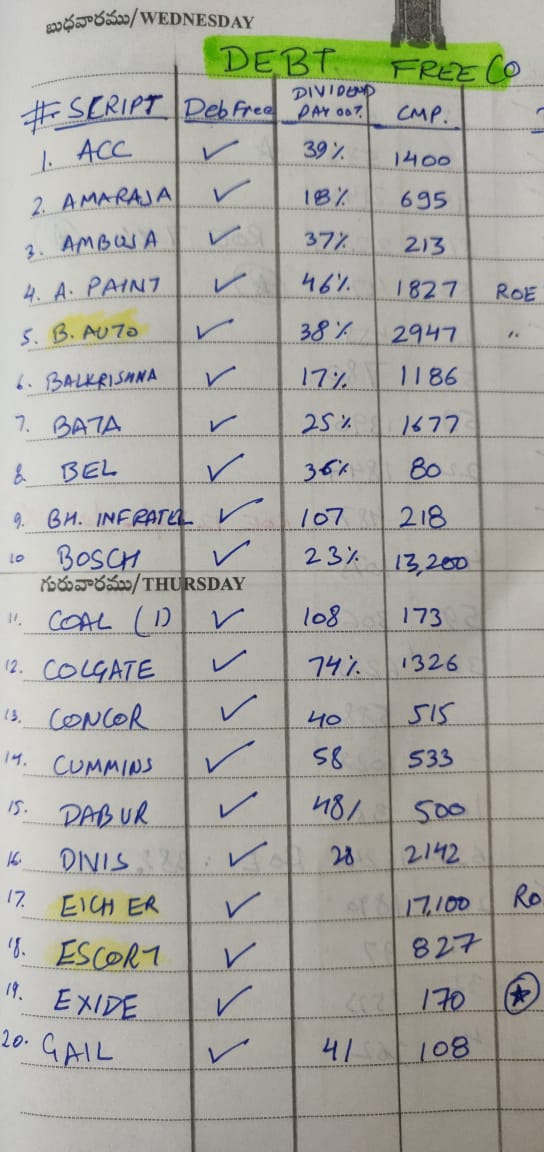 బుధవారము/ WEDNESDAY
DEBT FREE CO
#. SCRIPT Deb Free DIVIDEND PAY OUT. CMP.
1. ACC ✓ 39% 1400
2. AMARAJA ✓ 18% 695
3. AMBUJA ✓ 37% 213
4. A. PAINT ✓ 46% 1827 ROE
5. B. AUTO ✓ 38% 2947 "
6. BALKRISHNA ✓ 17% 1186
7. BATA ✓ 25% 1677
8. BEL ✓ 36% 80
9. BH. INFRATEL ✓ 107 218
10 BOSCH ✓ 23% 13,200
గురువారము/ THURSDAY
11. COAL (I) ✓ 108 173
12. COLGATE ✓ 74% 1326
13. CONCOR ✓ 40 515
14. CUMMINS ✓ 58 533
15. DABUR ✓ 48/ 500
16. DIVIS ✓ 28 2142
17. EICHER ✓ 17,100 RO
18. ESCORT ✓ 827
19. EXIDE ✓ 170
20. GAIL ✓ 41 108